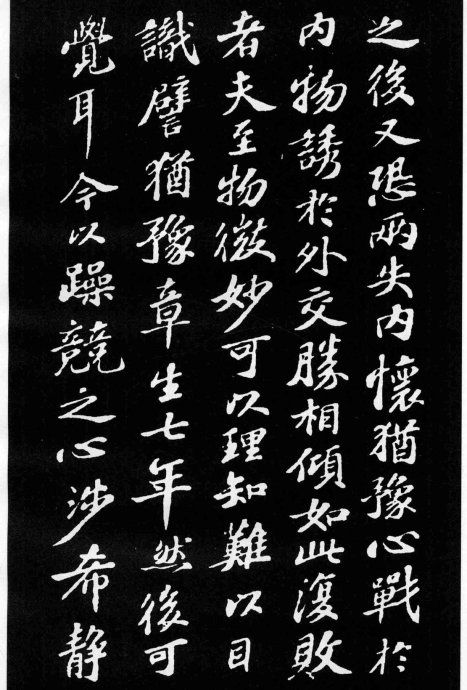 之後又恐兩失內懷猶豫心戰於
內物誘於外交賒相傾如此復敗
者夫至物微妙可以理知難以目
識譬猶豫章生七年然後可
覺耳今以躁競之心涉希靜